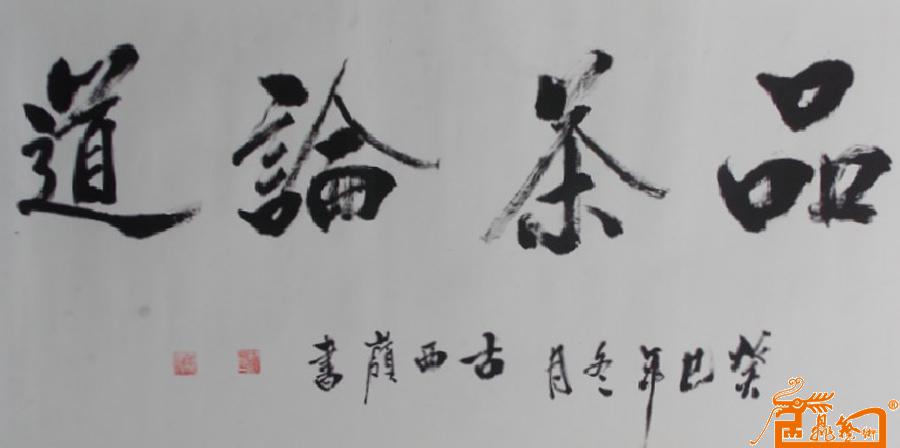 品茶論道
癸巳年冬月 古西嶺書